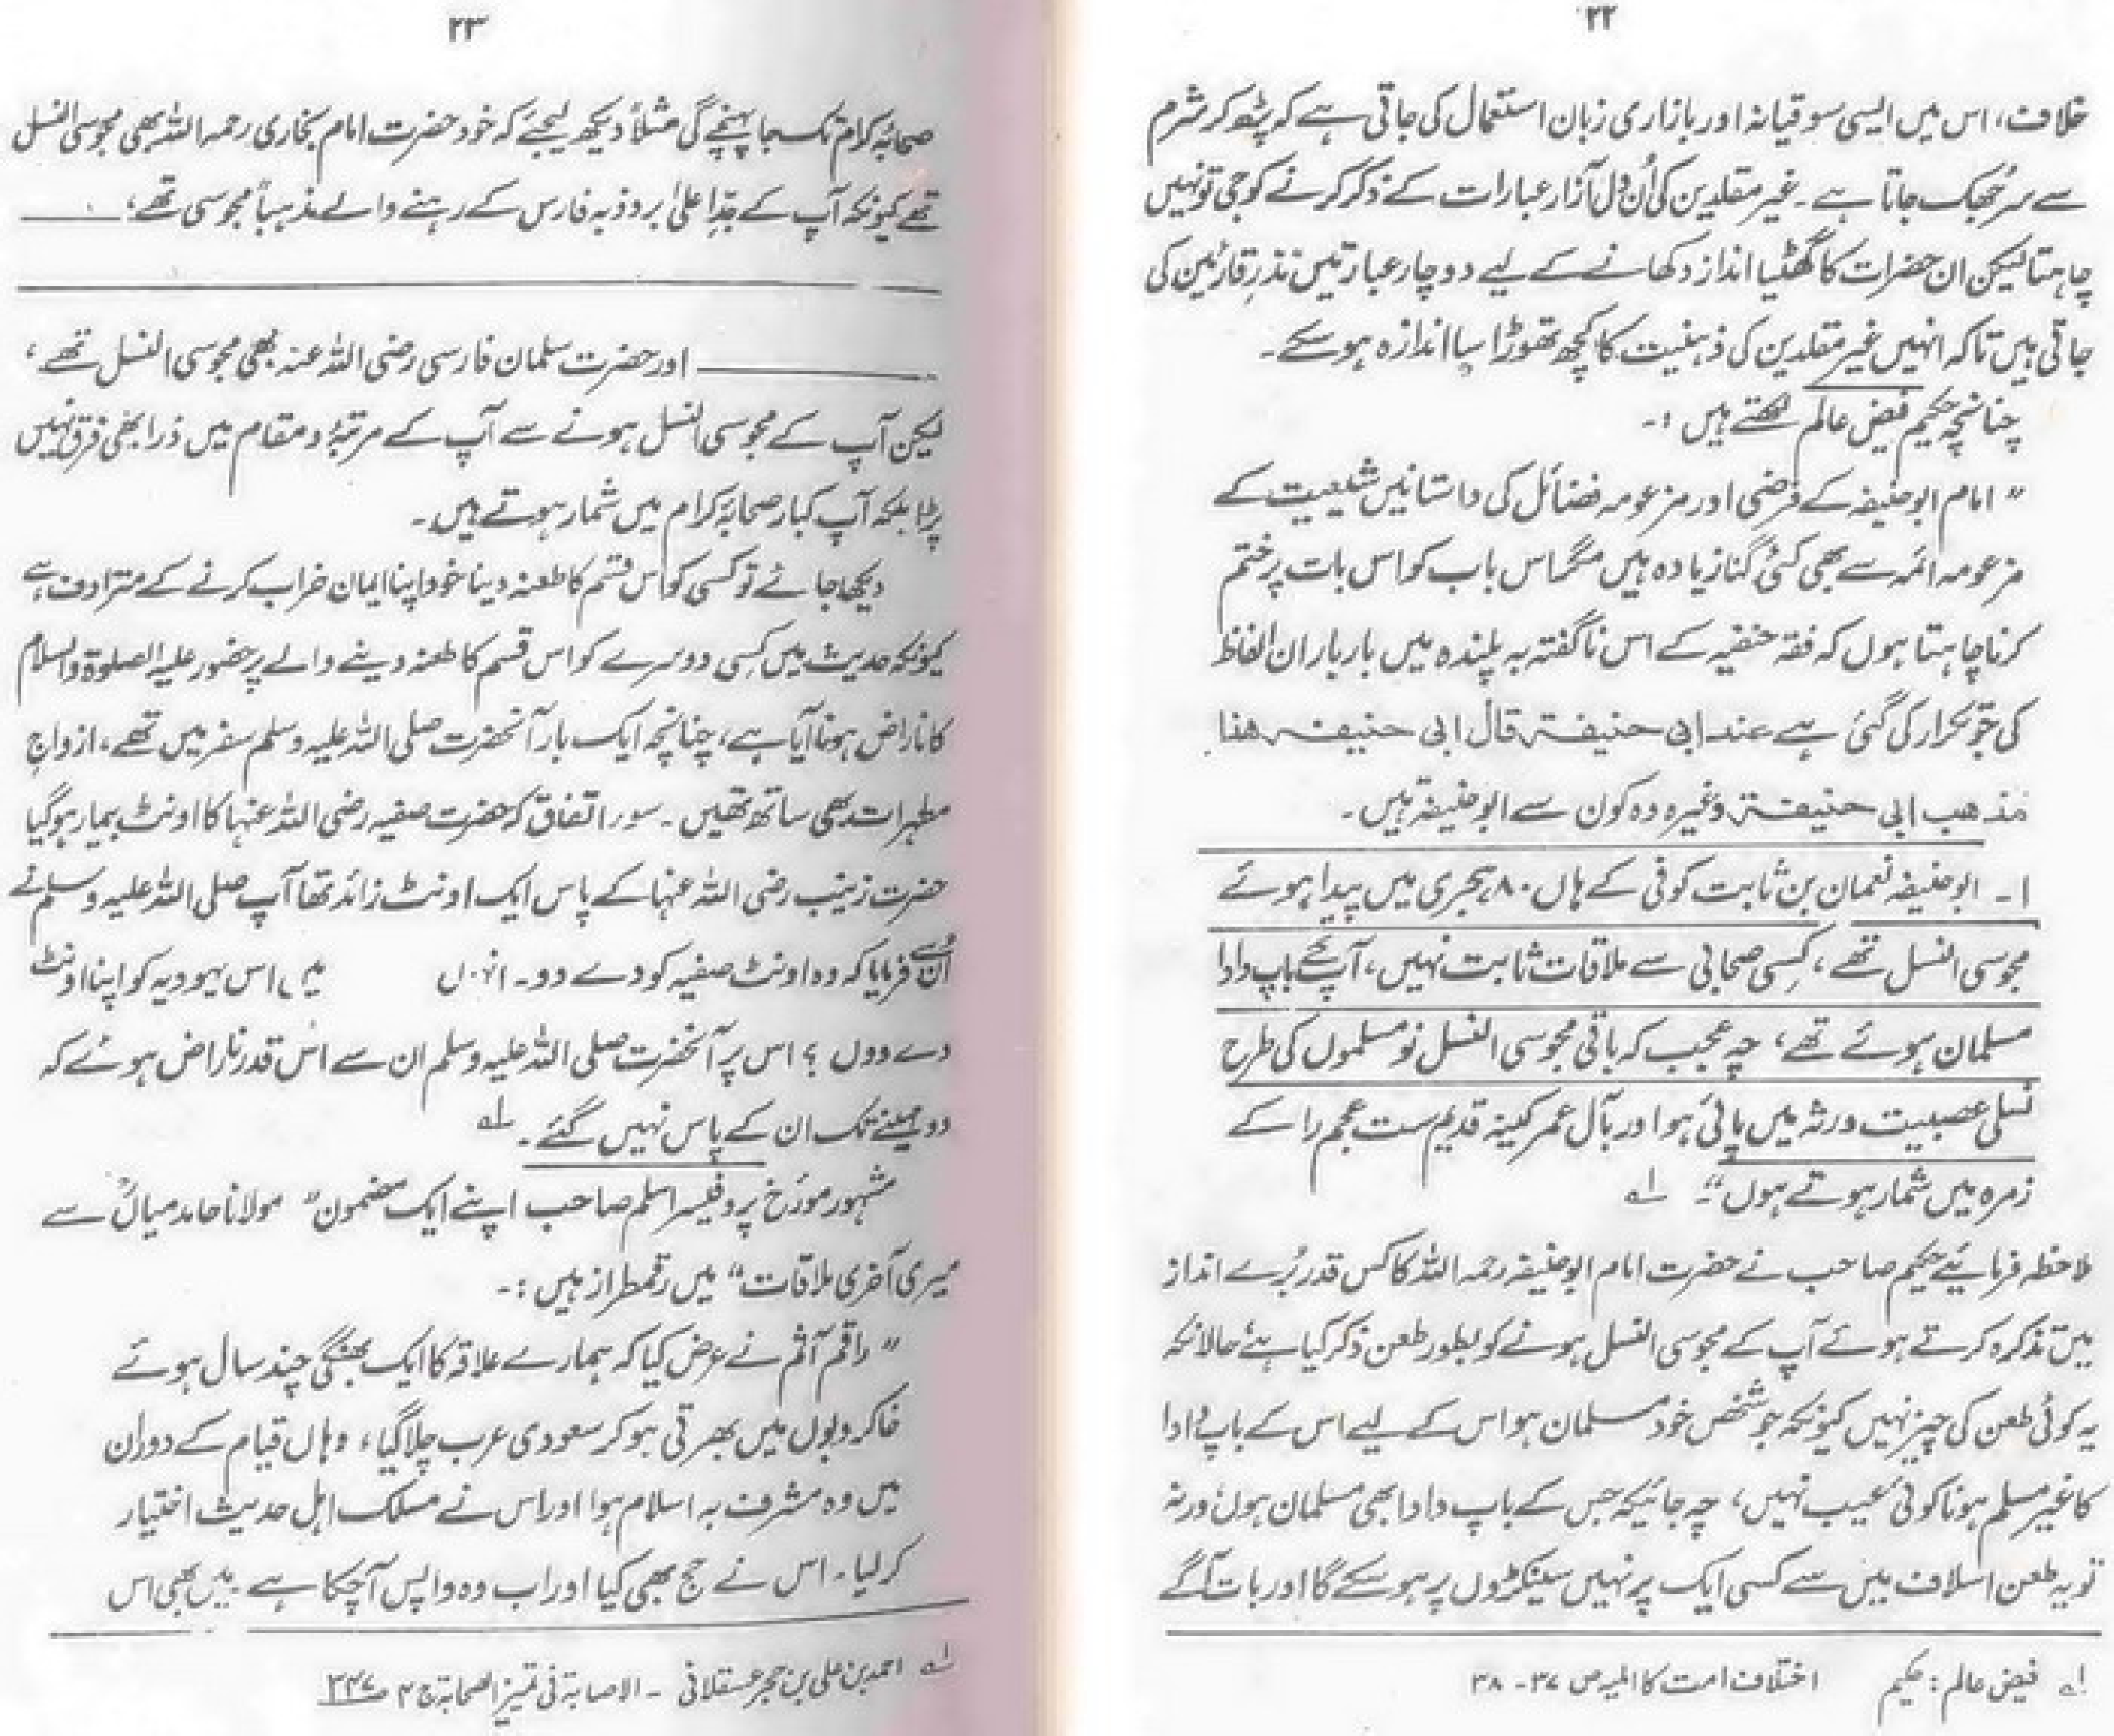 ۲۲
خلاف، اس میں ایسی سوقیانہ اور بازاری زبان استعمال کی جاتی ہے کہ پڑھ کر شرم
سے سر جُھک جاتا ہے۔ غیر مقلدین کی اُن دل آزار عبارات کے ذکر کرنے کو جی تو نہیں
چاہتا لیکن ان حضرات کا گھٹیا انداز دکھانے کے لیے دو چار عبارتیں نذرِ قارئین کی
جاتی ہیں تاکہ انہیں غیر مقلدین کی ذہنیت کا کچھ تھوڑا سا اندازہ ہو سکے۔
چنانچہ حکیم فیض عالم لکھتے ہیں :۔
” امام ابوحنیفہ کے فرضی اور مزعومہ فضائل کی داستانیں شیعیت کے
مزعومہ ائمہ سے بھی کئی گنا زیادہ ہیں مگر اس باب کو اس بات پر ختم
کرنا چاہتا ہوں کہ فقہ حنفیہ کے اس ناگفتہ بہ پلندہ میں بار بار ان الفاظ
کی جو تکرار کی گئی ہے عند ابی حنیفۃ، قال ابی حنیفہ، ھذا
مذھب ابی حنیفۃ وغیرہ وہ کون سے ابوحنیفہ ہیں۔
۱۔ ابوحنیفہ نعمان بن ثابت کوفی کے ہاں ۸۰ ہجری میں پیدا ہوئے
مجوسی النسل تھے، کِسی صحابی سے ملاقات ثابت نہیں، آپ کے باپ دادا
مسلمان ہوئے تھے، چہ عجب کہ باقی مجوسی النسل نو مسلموں کی طرح
نسلی عصبیت ورثہ میں پائی ہو اور بآل عمر کینہ قدیم ست عجم را کے
زمرہ میں شمار ہوتے ہوں“۔ لہ
ملاحظہ فرمائیے حکیم صاحب نے حضرت امام ابوحنیفہ رحمہ اللہ کا کس قدر بُرے انداز
میں تذکرہ کرتے ہوئے آپ کے مجوسی النسل ہونے کو بطور طعن ذکر کیا ہے حالانکہ
یہ کوئی طعن کی چیز نہیں کیونکہ جو شخص خود مسلمان ہو اس کے لیے اس کے باپ دادا
کا غیر مسلم ہونا کوئی عیب نہیں، چہ جائیکہ جس کے باپ دادا بھی مسلمان ہوں ورنہ
تو یہ طعن اسلاف میں سے کسی ایک پر نہیں سینکڑوں پر ہو سکے گا اور بات آگے
لہ فیض عالم : حکیم اختلاف امت کا المیہ ص ۳۷۔ ۳۸
۲۳
صحابۂ کرام تک جا پہنچے گی مثلاً دیکھ لیجئے کہ خود حضرت امام بخاری رحمہ اللہ بھی مجوسی النسل
تھے کیونکہ آپ کے جدِّ اعلیٰ بردذبہ فارس کے رہنے والے مذہباً مجوسی تھے،
اور حضرت سلمان فارسی رضی اللہ عنہ بھی مجوسی النسل تھے،
لیکن آپ کے مجوسی النسل ہونے سے آپ کے مرتبۂ و مقام میں ذرا بھی فرق نہیں
پڑا بلکہ آپ کبار صحابۂ کرام میں شمار ہوتے ہیں۔
دیکھا جائے تو کسی کو اس قسم کا طعنہ دینا خود اپنا ایمان خراب کرنے کے مترادف ہے
کیونکہ حدیث میں کسی دوسرے کو اس قسم کا طعنہ دینے والے پر حضور علیہ الصلوۃ والسلام
کا ناراض ہونا آیا ہے، چنانچہ ایک بار آنحضرت صلی اللہ علیہ وسلم سفر میں تھے، ازواجِ
مطہرات بھی ساتھ تھیں۔ سوء اتفاق کہ حضرت صفیہ رضی اللہ عنہا کا اونٹ بیمار ہو گیا
حضرت زینب رضی اللہ عنہا کے پاس ایک اونٹ زائد تھا آپ صلی اللہ علیہ وسلم نے
اُن سے فرمایا کہ وہ اونٹ صفیہ کو دے دو۔ انہوں میں اس یہودیہ کو اپنا اونٹ
دے دوں ؟ اس پر آنحضرت صلی اللہ علیہ وسلم ان سے اس قدر ناراض ہوئے کہ
دو مہینے تک ان کے پاس نہیں گئے۔ لہ
مشہور مورّخ پروفیسر اسلم صاحب اپنے ایک مضمون ” مولانا حامد میاںؒ سے
میری آخری ملاقات“ میں رقمطراز ہیں :۔
” راقم آثم نے عرض کیا کہ ہمارے علاقہ کا ایک بھنگی چند سال ہوئے
خاکروبوں میں بھرتی ہو کر سعودی عرب چلا گیا، وہاں قیام کے دوران
میں وہ مشرف بہ اسلام ہوا اور اس نے مسلک اہل حدیث اختیار
کر لیا۔ اس نے حج بھی کیا اور اب وہ واپس آچکا ہے۔ میں بھی اس
لہ احمد بن علی بن حجر عسقلانی ۔ الاصابۃ فی تمییز الصحابۃ ج ۴ ص ۳۴۷